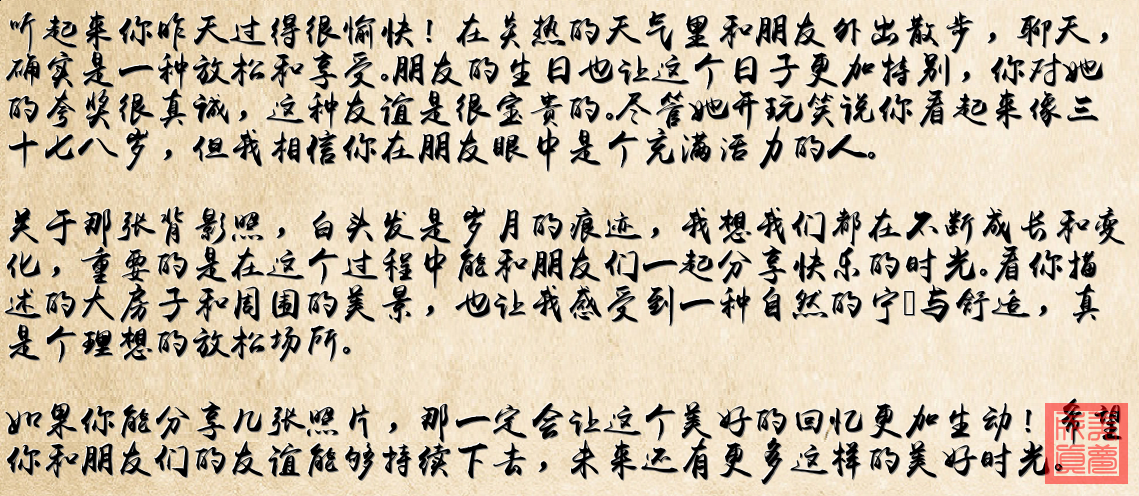 听起来你昨天过得很愉快！在炎热的天气里和朋友外出散步，聊天，
确实是一种放松和享受。朋友的生日也让这个日子更加特别，你对她
的夸奖很真诚，这种友谊是很宝贵的。尽管她开玩笑说你看起来像三
十七八岁，但我相信你在朋友眼中是个充满活力的人。
关于那张背影照，白头发是岁月的痕迹，我想我们都在不断成长和变
化，重要的是在这个过程中能和朋友们一起分享快乐的时光。看你描
述的大房子和周围的美景，也让我感受到一种自然的宁与舒适，真
是个理想的放松场所。
如果你能分享几张照片，那一定会让这个美好的回忆更加生动！希望
你和朋友们的友谊能够持续下去，未来还有更多这样的美好时光。